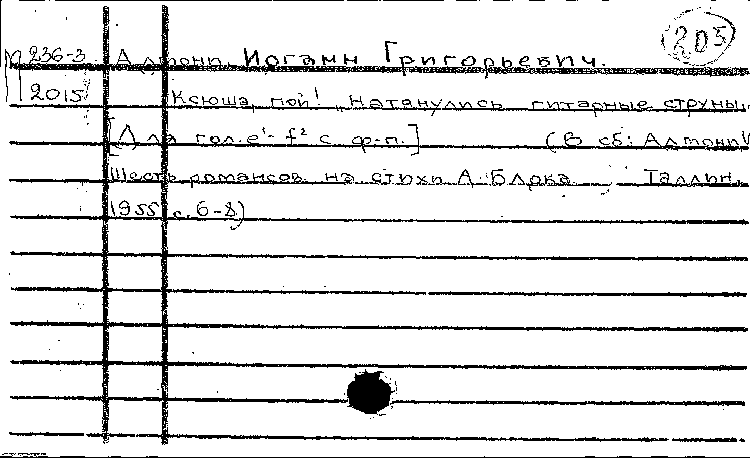 205
М 236-3 Адмони, Иоганн Григорьевич.
2015 Ксюша, пой! „Натянулись гитарные струны..
[Для гол. e¹- f² с ф-п.] (В сб: Адмони И
Шесть романсов на стихи А. Блока Таллин,
1955, с. 6-8)